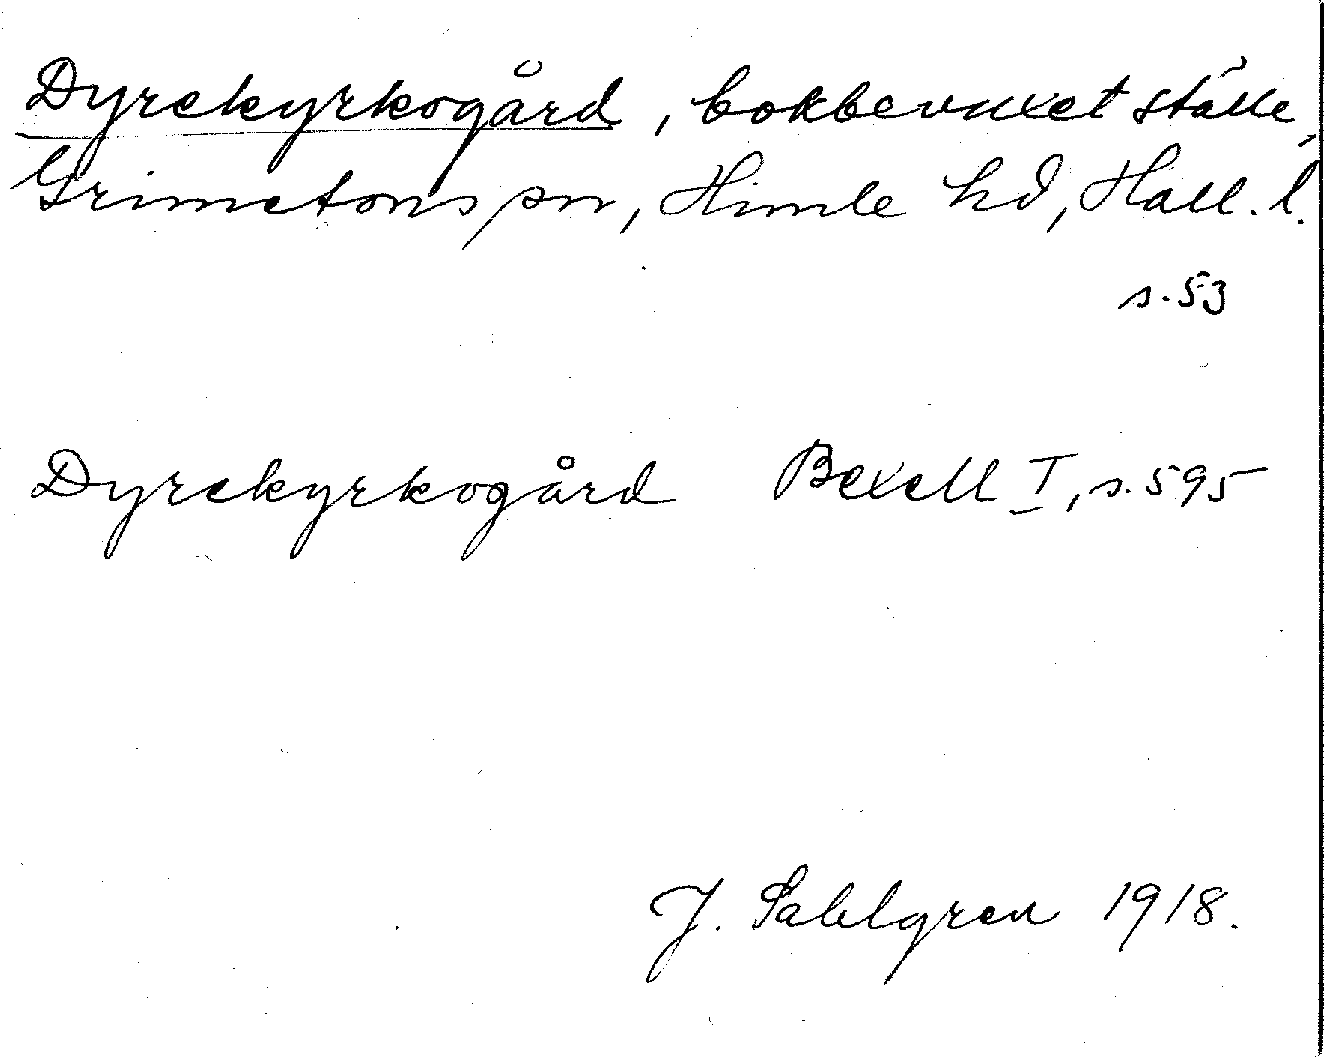 Dyrekyrkogård, bokbevuxet ställe,
Grimetons sn, Himle hd, Hall. l.
s. 53
Dyrekyrkogård Bexell I, s. 595
J. Sahlgren 1918.